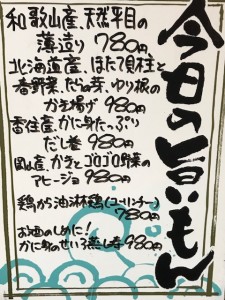 今日の旨いもん
和歌山産、天然平目の
薄造り 780円
北海道産、ほたて貝柱と
春野菜、たらの芽、ゆり根の
かき揚げ 980円
香住産、かに身たっぷり
だし巻 980円
岡山産、かきとゴロゴロ野菜の
アヒージョ 980円
鶏から油淋鶏(ユーリンチー)
780円
お酒のしめに!
かに身のせいろ蒸し寿司 980円